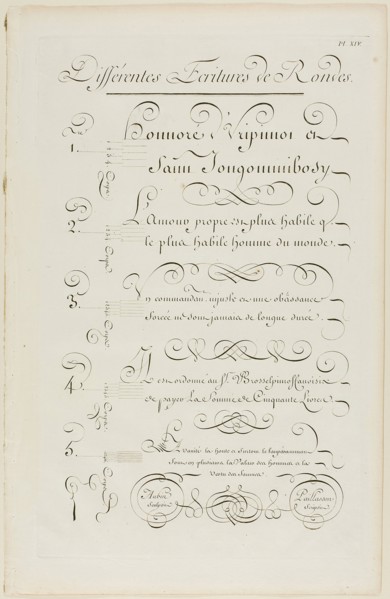 Pl. XIV.
Différentes Ecritures de Rondes.
La
1.
Honnoré d'Vripinnoi et
Saim Jongoumnibosy
2.
L'Amour propre est plus habile q.
le plus habile homme du monde.
3.
Vn commandant injuste a une obéissance
forcée ne dont jamais de longue durée.
4.
Il est ordonné au Sr.
de payer la Somme de Cinquante Livres
5.
la Vanité la honte et surtout le tempérament
font en plusieurs la Valeur des hommes et la
Vertu des femmes.
Aubin
Sculpsit
Paillasson
Scripsit